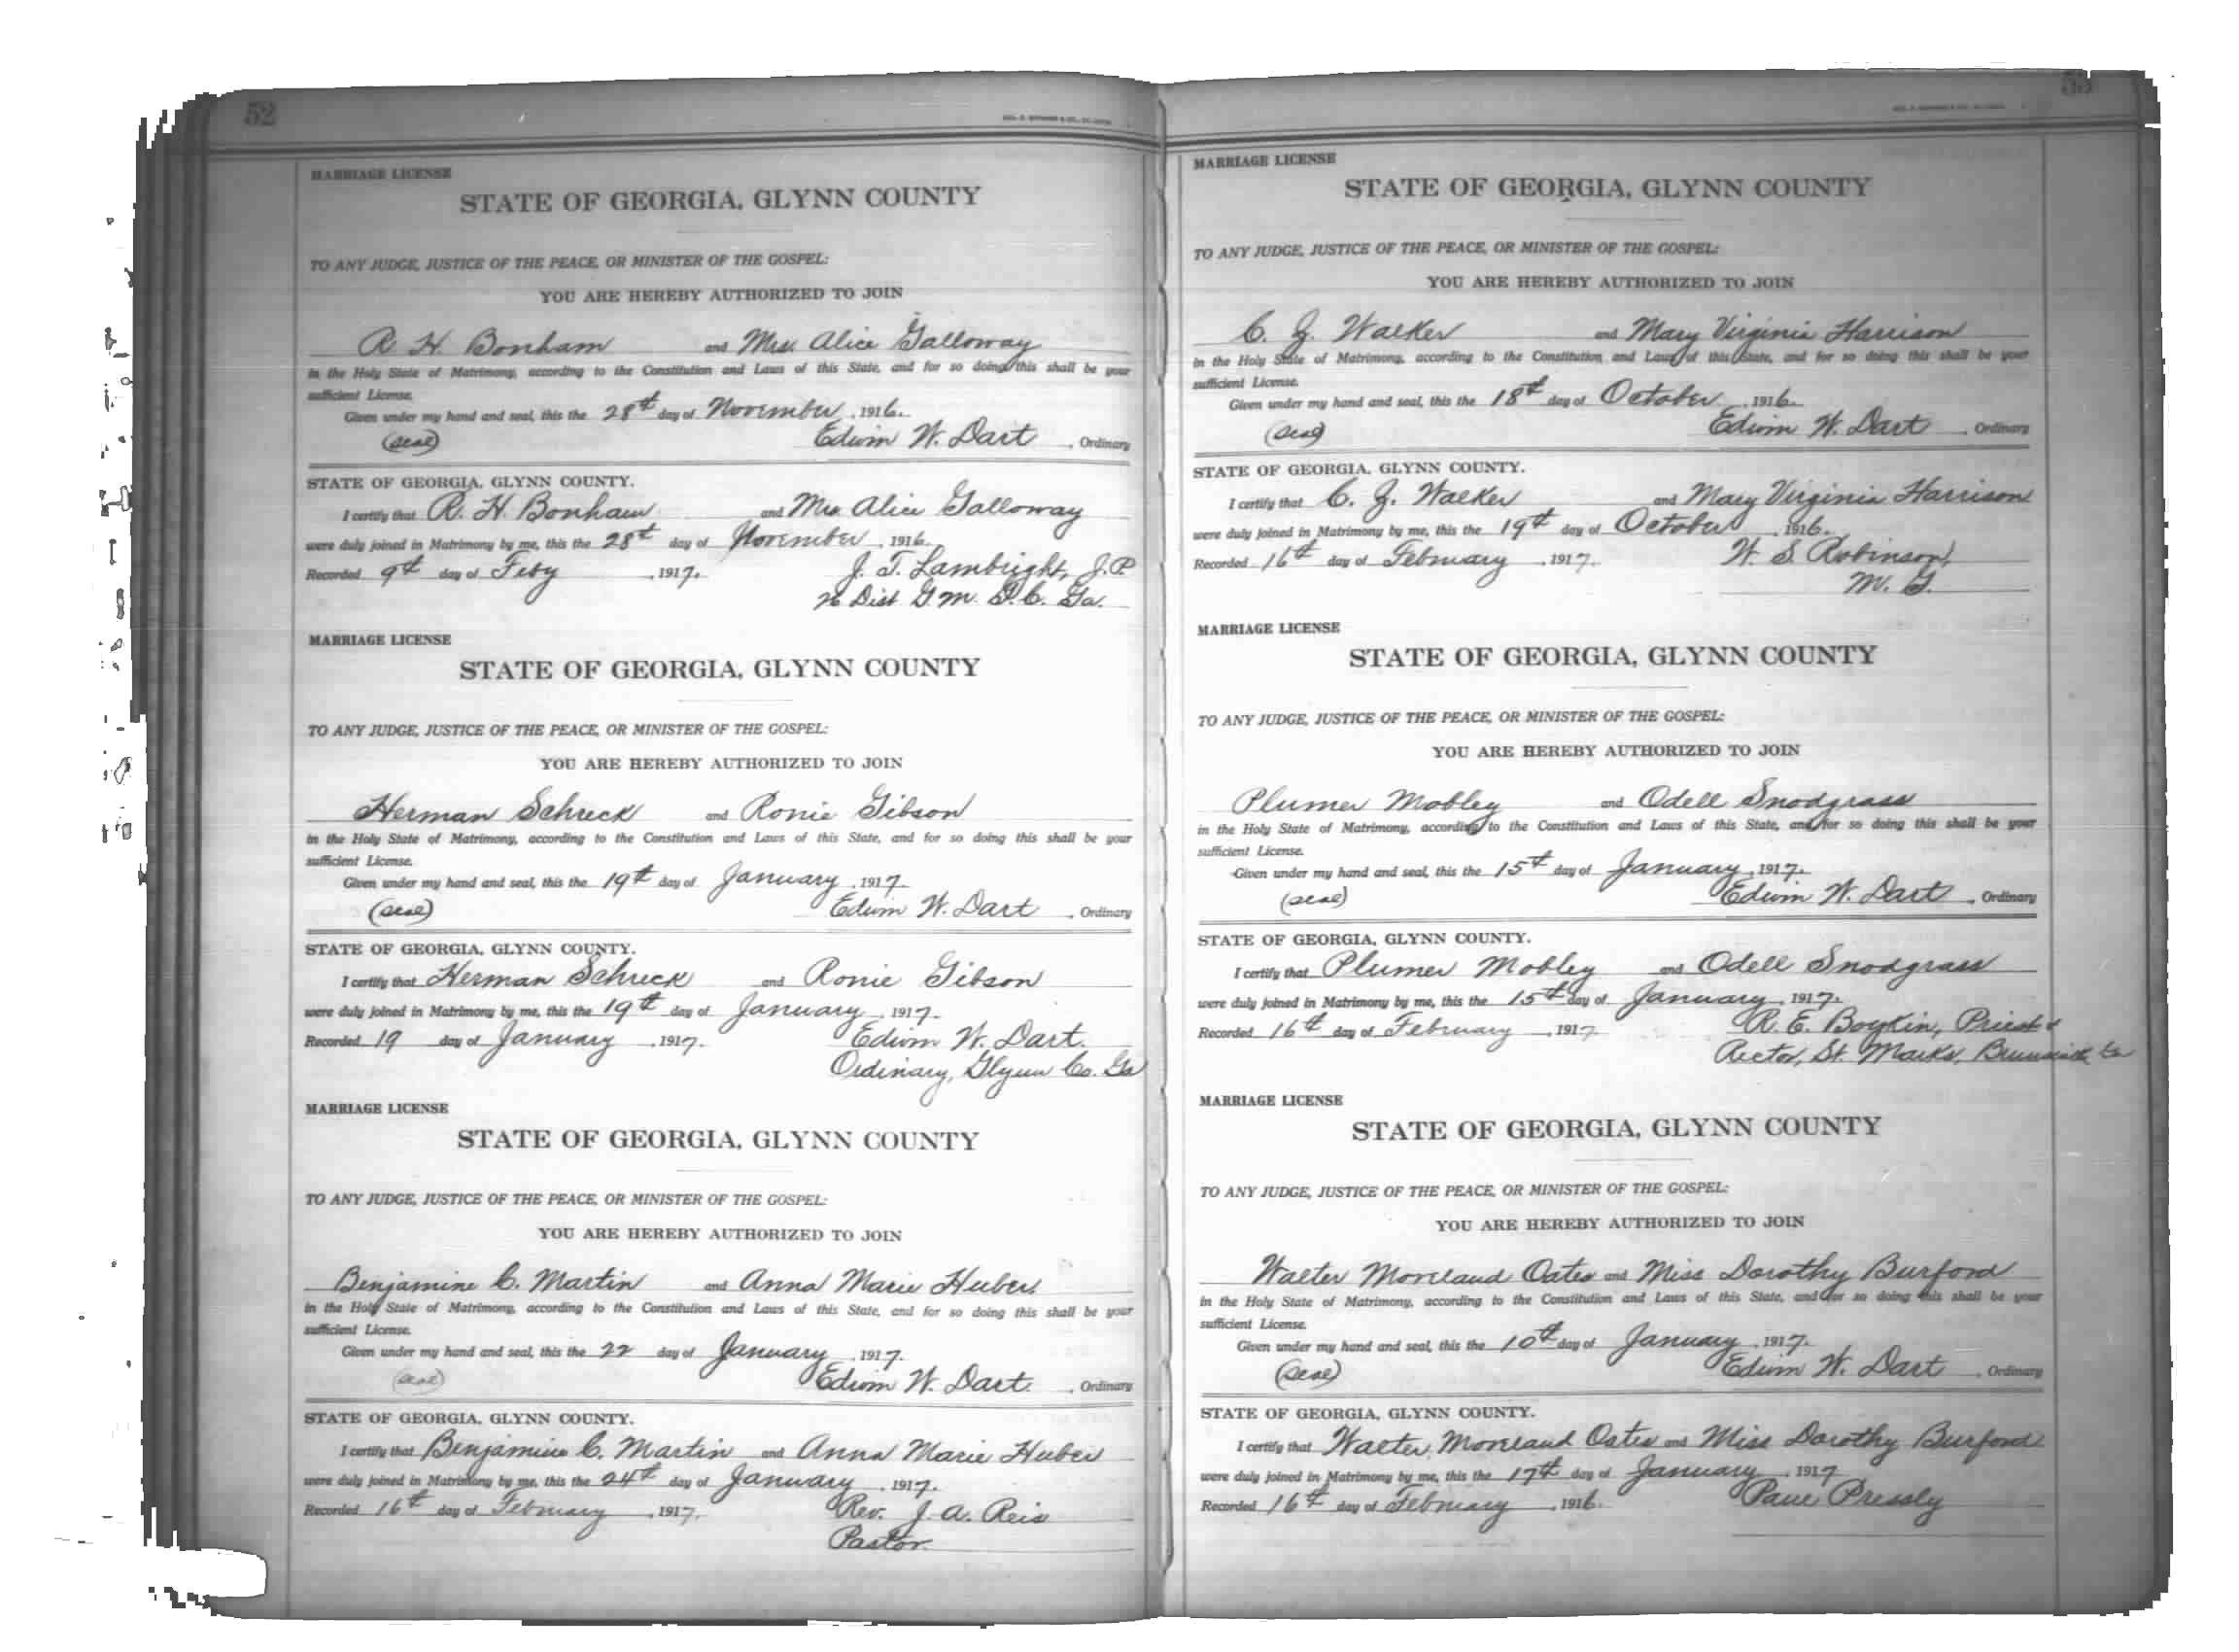 52
MARRIAGE LICENSE
STATE OF GEORGIA, GLYNN COUNTY
TO ANY JUDGE, JUSTICE OF THE PEACE, OR MINISTER OF THE GOSPEL:
YOU ARE HEREBY AUTHORIZED TO JOIN
R. H. Bonham and Mrs. Alice Galloway
in the Holy State of Matrimony, according to the Constitution and Laws of this State, and for so doing this shall be your
sufficient License.
Given under my hand and seal, this the 28th day of November, 1916.
(seal) Edwin W. Dart, Ordinary
STATE OF GEORGIA, GLYNN COUNTY.
I certify that R. H. Bonham and Mrs Alice Galloway
were duly joined in Matrimony by me, this the 28th day of November, 1916.
Recorded 9th day of Feby, 1917. J. T. Lambright, J.P.
26 Dist G.M. G.C. Ga.
MARRIAGE LICENSE
STATE OF GEORGIA, GLYNN COUNTY
TO ANY JUDGE, JUSTICE OF THE PEACE, OR MINISTER OF THE GOSPEL:
YOU ARE HEREBY AUTHORIZED TO JOIN
Herman Schreck and Ronie Gibson
in the Holy State of Matrimony, according to the Constitution and Laws of this State, and for so doing this shall be your
sufficient License.
Given under my hand and seal, this the 19th day of January, 1917.
(seal) Edwin W. Dart, Ordinary
STATE OF GEORGIA, GLYNN COUNTY.
I certify that Herman Schreck and Ronie Gibson
were duly joined in Matrimony by me, this the 19th day of January, 1917.
Recorded 19 day of January, 1917. Edwin W. Dart.
Ordinary, Glynn Co. Ga
MARRIAGE LICENSE
STATE OF GEORGIA, GLYNN COUNTY
TO ANY JUDGE, JUSTICE OF THE PEACE, OR MINISTER OF THE GOSPEL:
YOU ARE HEREBY AUTHORIZED TO JOIN
Benjamine C. Martin and Anna Marie Huber
in the Holy State of Matrimony, according to the Constitution and Laws of this State, and for so doing this shall be your
sufficient License.
Given under my hand and seal, this the 22 day of January, 1917.
(seal) Edwin W. Dart, Ordinary
STATE OF GEORGIA, GLYNN COUNTY.
I certify that Benjamine C. Martin and Anna Marie Huber
were duly joined in Matrimony by me, this the 24th day of January, 1917.
Recorded 16th day of February, 1917. Rev. J. A. Reis
Pastor.
53
MARRIAGE LICENSE
STATE OF GEORGIA, GLYNN COUNTY
TO ANY JUDGE, JUSTICE OF THE PEACE, OR MINISTER OF THE GOSPEL:
YOU ARE HEREBY AUTHORIZED TO JOIN
C. J. Walker and Mary Virginia Harrison
in the Holy State of Matrimony, according to the Constitution and Laws of this State, and for so doing this shall be your
sufficient License.
Given under my hand and seal, this the 18th day of October, 1916.
(seal) Edwin W. Dart, Ordinary
STATE OF GEORGIA, GLYNN COUNTY.
I certify that C. J. Walker and Mary Virginia Harrison
were duly joined in Matrimony by me, this the 19th day of October, 1916.
Recorded 16th day of February, 1917. W. S. Robinson,
M. G.
MARRIAGE LICENSE
STATE OF GEORGIA, GLYNN COUNTY
TO ANY JUDGE, JUSTICE OF THE PEACE, OR MINISTER OF THE GOSPEL:
YOU ARE HEREBY AUTHORIZED TO JOIN
Plumer Mobley and Odell Snodgrass
in the Holy State of Matrimony, according to the Constitution and Laws of this State, and for so doing this shall be your
sufficient License.
Given under my hand and seal, this the 15th day of January, 1917.
(seal) Edwin W. Dart, Ordinary
STATE OF GEORGIA, GLYNN COUNTY.
I certify that Plumer Mobley and Odell Snodgrass
were duly joined in Matrimony by me, this the 15th day of January, 1917.
Recorded 16th day of February, 1917 R. E. Boykin, Priest &
Rector, St. Marks, Brunswick Ga
MARRIAGE LICENSE
STATE OF GEORGIA, GLYNN COUNTY
TO ANY JUDGE, JUSTICE OF THE PEACE, OR MINISTER OF THE GOSPEL:
YOU ARE HEREBY AUTHORIZED TO JOIN
Walter Moreland Oates and Miss Dorothy Burford
in the Holy State of Matrimony, according to the Constitution and Laws of this State, and for so doing this shall be your
sufficient License.
Given under my hand and seal, this the 10th day of January, 1917.
(seal) Edwin W. Dart, Ordinary
STATE OF GEORGIA, GLYNN COUNTY.
I certify that Walter Moreland Oates and Miss Dorothy Burford
were duly joined in Matrimony by me, this the 17th day of January, 1917
Recorded 16th day of February, 1916. Paul Pressly